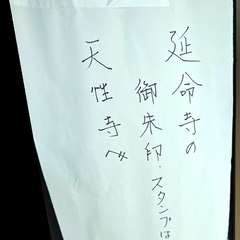 延命寺の
御朱印・スタンプは
天性寺へ